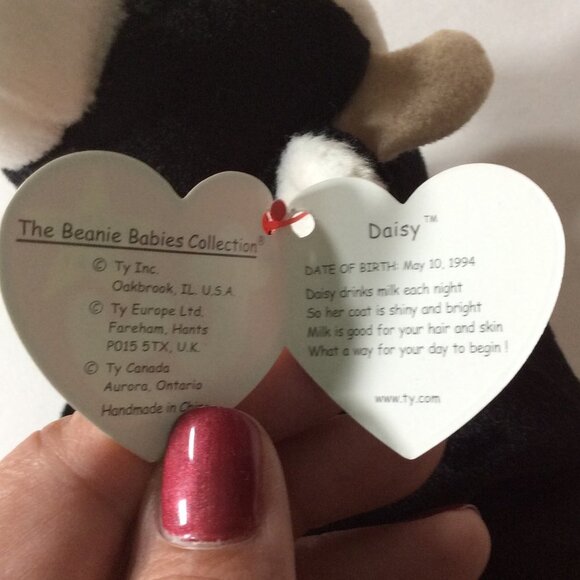 The Beanie Babies Collection®
© Ty Inc.
Oakbrook, IL. U.S.A.
© Ty Europe Ltd.
Fareham, Hants
P015 5TX, U.K.
© Ty Canada
Aurora, Ontario
Handmade in China
Daisy™
DATE OF BIRTH: May 10, 1994
Daisy drinks milk each night
So her coat is shiny and bright
Milk is good for your hair and skin
What a way for your day to begin !
www.ty.com